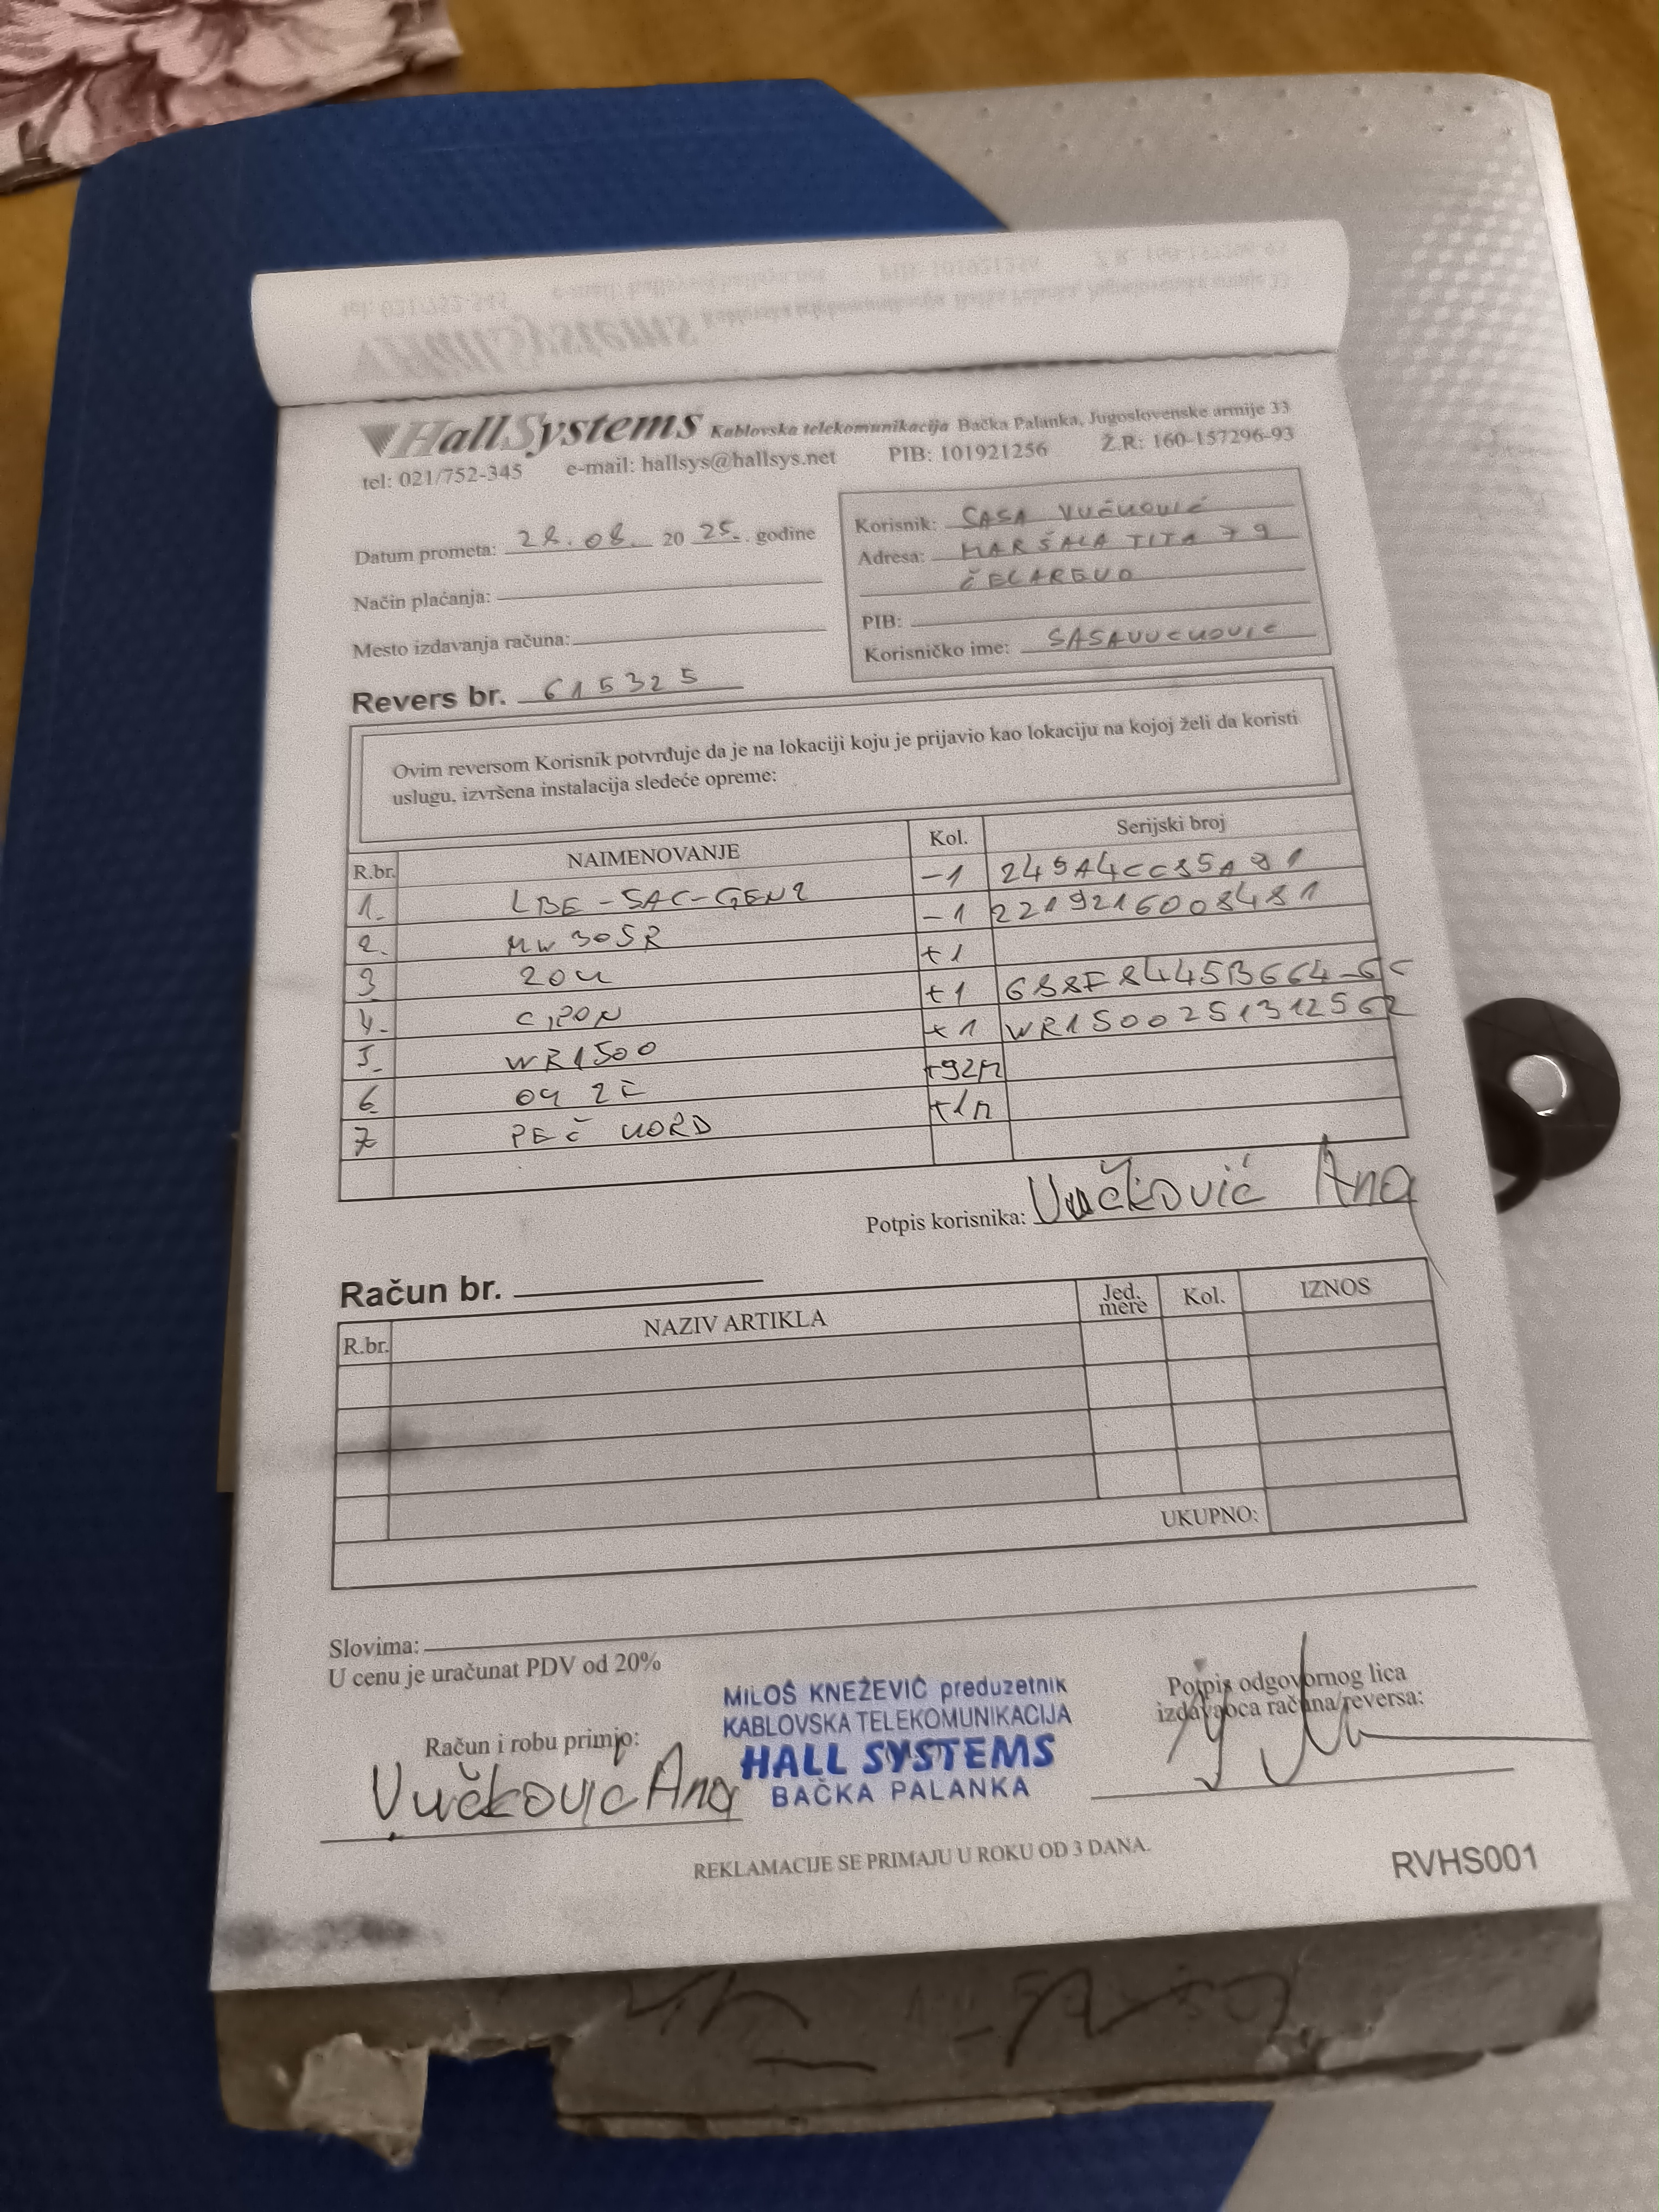 HallSystems Kablovska telekomunikacija Bačka Palanka, Jugoslovenske armije 33
tel: 021/752-345 e-mail: hallsys@hallsys.net PIB: 101921256 Ž.R: 160-157296-93
Datum prometa: 28.08. 20 25. godine
Način plaćanja:
Mesto izdavanja računa:
Korisnik: SAŠA VUČKOVIĆ
Adresa: MARŠALA TITA 79
ČELAREVO
PIB:
Korisničko ime: SASAVUCKOVIC
Revers br. 615325
Ovim reversom Korisnik potvrđuje da je na lokaciji koju je prijavio kao lokaciju na kojoj želi da koristi
uslugu, izvršena instalacija sledeće opreme:
R.br. NAIMENOVANJE Kol. Serijski broj
1. LBE-5AC-GEN2 -1 245A4CC85A81
2. MW305R -1 2219216008481
3 ZOK +1
4. CPON +1 688F8445B664-GC
5. WR1500 +1 WR1500251312562
6 OK 2F +92m
7 PEČ KORD +1m
Potpis korisnika: Vučković Ana
Račun br.
R.br. NAZIV ARTIKLA Jed. mere Kol. IZNOS
UKUPNO:
Slovima:
U cenu je uračunat PDV od 20%
Račun i robu primio:
Vučković Ana
MILOŠ KNEŽEVIĆ preduzetnik
KABLOVSKA TELEKOMUNIKACIJA
HALL SYSTEMS
BAČKA PALANKA
Potpis odgovornog lica
izdavaoca računa/reversa:
REKLAMACIJE SE PRIMAJU U ROKU OD 3 DANA.
RVHS001